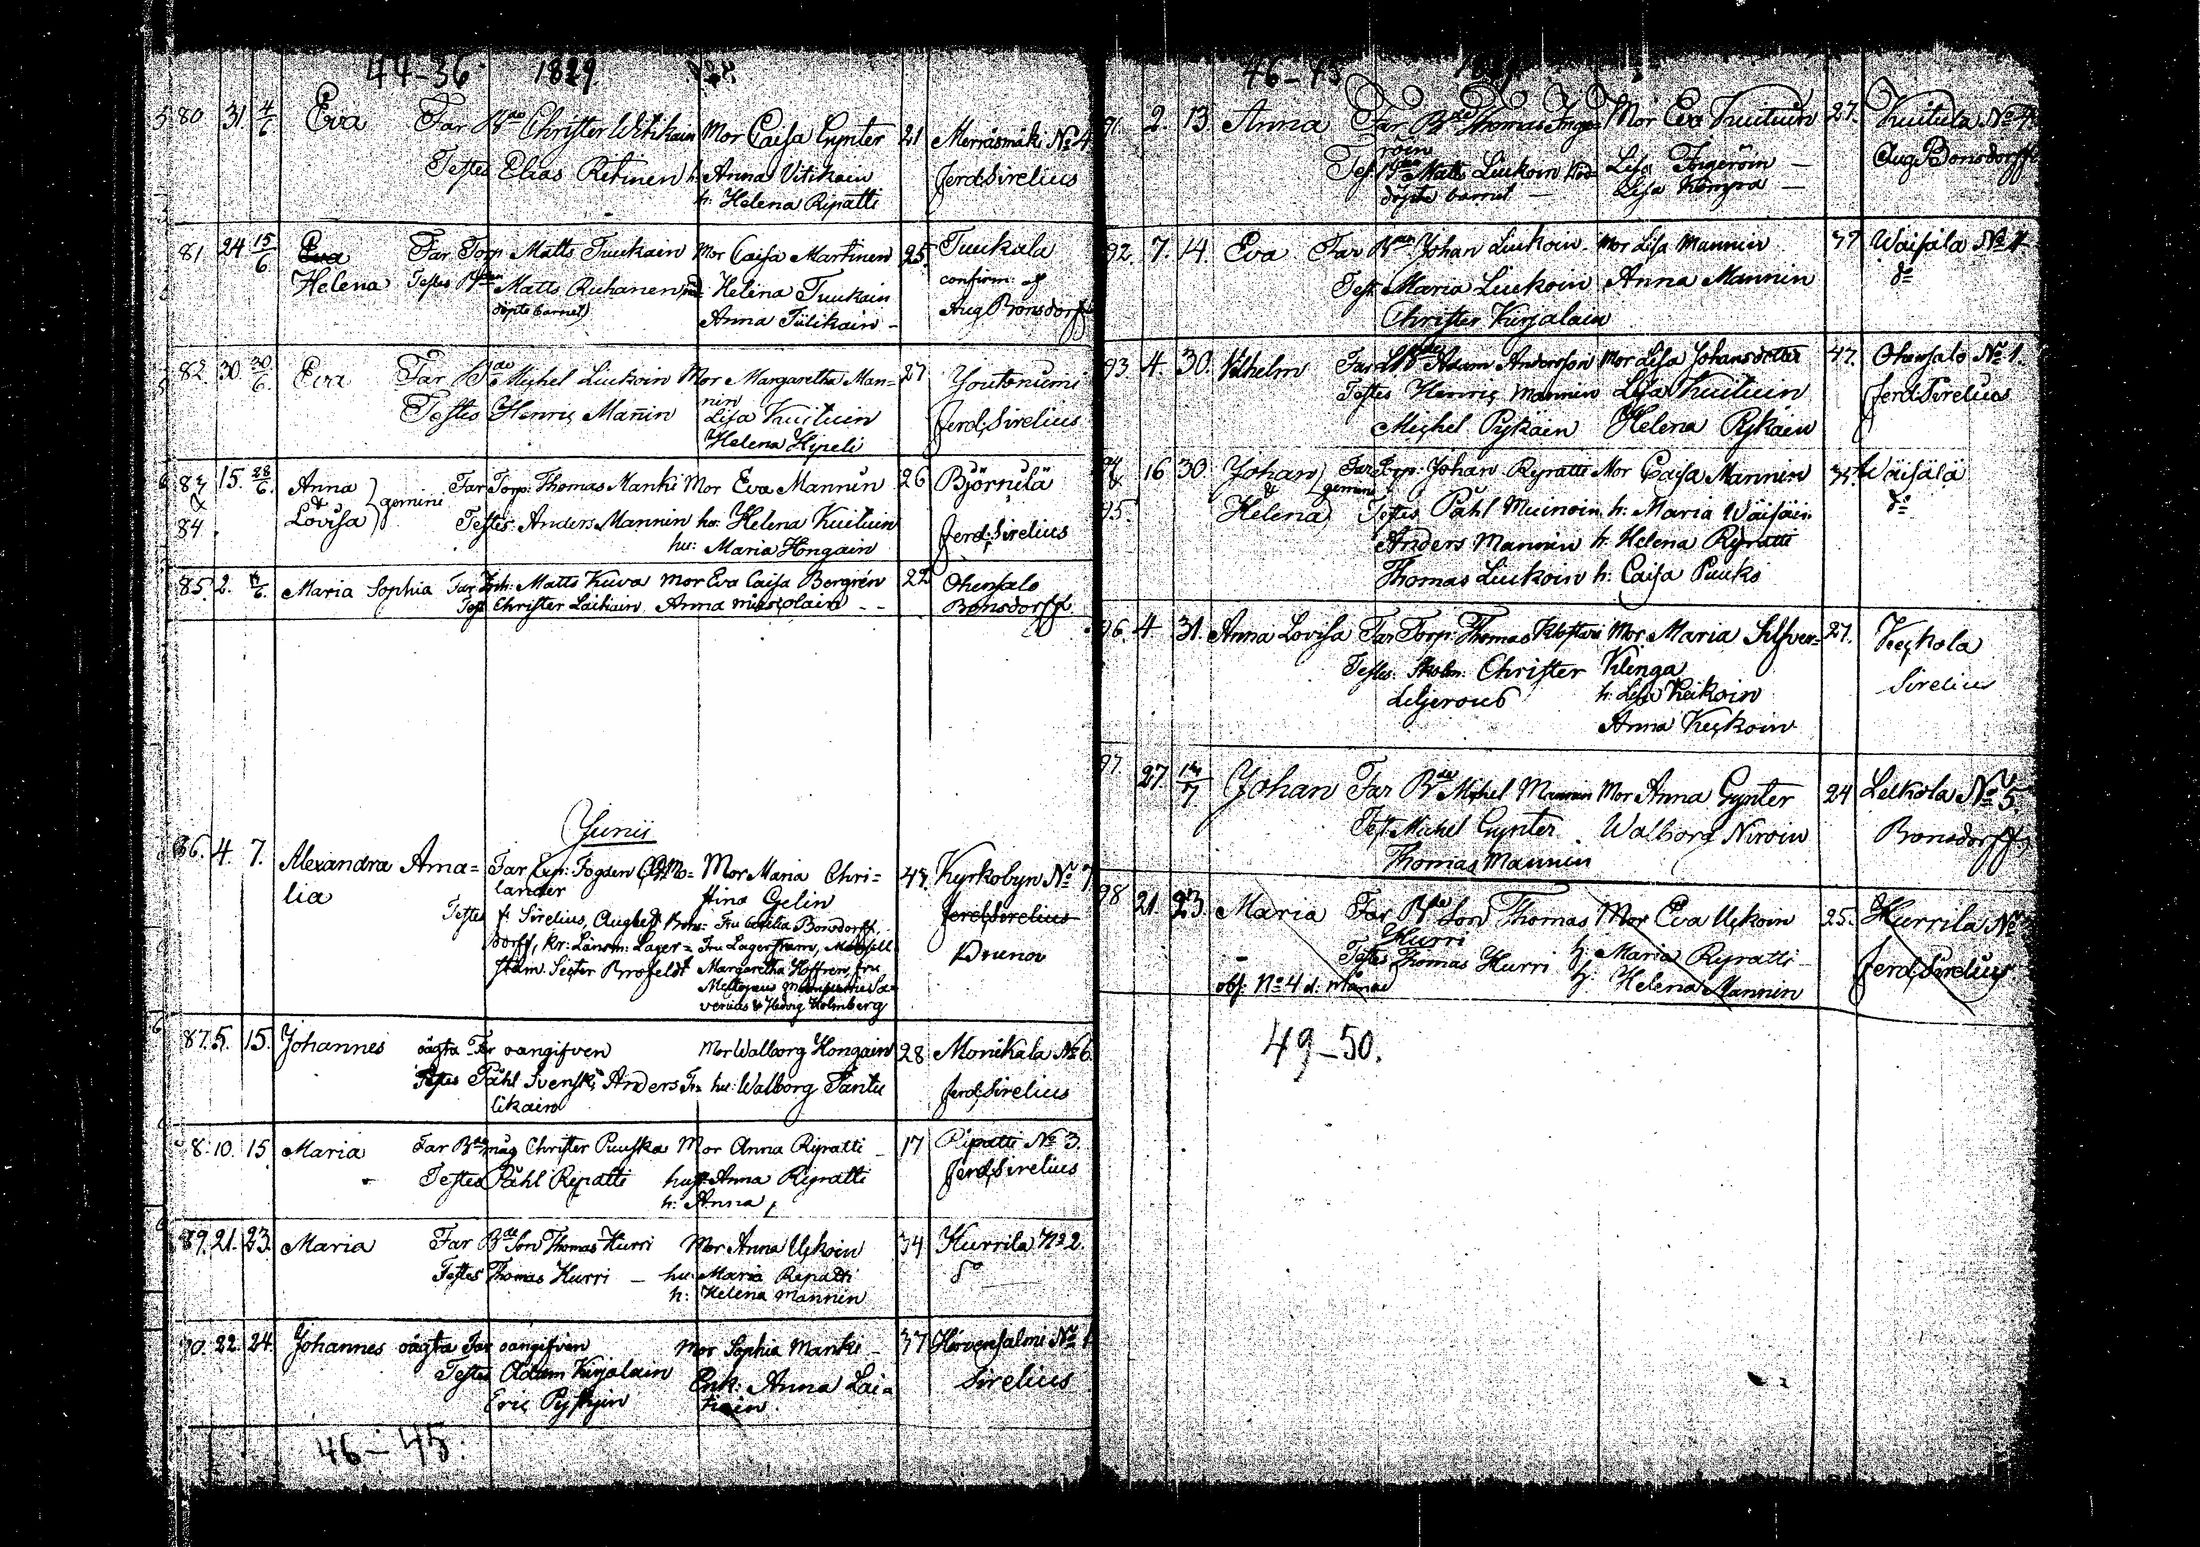 44-36 1829
80 31 4/6 Eva Far Bde Christer Witikain Mor Caisa Gynter 21 Merräsmäki No 4
Testes Elias Retinen h. Anna Vitikain Ferd. Sirelius
h: Helena Ripatti
81 24 15/6 Eva Far Torp: Matts Tuukain Mor Caisa Martinen 25 Tuukala
Helena Testes Matts Ruhanen Helena Tuukain confirm: af
döpte barnet) Anna Tiilikain - Aug Bonsdorff
82. 30 30/6. Eva Far Bde Michel Liukoin Mor Margaretha Man= 27 Joutonumi
nin
Testes Henric Manin Lisa Kuituin Ferd. Sirelius
Helena Hypeli
83 15. 28/6. Anna gemini Far Torp: Thomas Manki Mor Eva Mannin 26 Björnilä
&
84 Lovisa Testes: Anders Mannin hu: Helena Kuituin Ferd: Sirelius
hu: Maria Hongain
85. 2. Maria Sophia Far Inh: Matts Kuva Mor Eva Caisa Borgrén 22 Ohensalo
Test Christer Laitiain Anna - - Bonsdorff
Junii
86. 4. 7. Alexandra Ama= Far Exp: Fogden Mo= Mor Maria Chri= 43. Kyrkobyn No 7
lia lander stina Gelin
Testes h. Sirelius, August Bons= Fru Cecilia Bonsdorff, Ferd. Sirelius
dorff, Kr: Länsm: Lager= Fru Lagerstam, Brunou
stam. Brofeldt Margaretha Hoffren, Fru
verius & Hedvig Holmberg
87. 5. 15. Johannes oägta Far oangifven Mor Walborg Hongain 28 Monikala No 6
Testes Påhl Svensk, Anders Ti= hu: Walborg Tantu Ferd. Sirelius
likain
8. 10. 15 Maria Far Bde måg Christer Puuska Mor Anna Ripatti - 17 Ripatti No 3.
Testes Påhl Ripatti hust: Anna Ripatti Ferd. Sirelius
h: Anna
89. 21. 23. Maria Far Bde Son Thomas Hurri Mor Anna Uskoin 34 Hurrila No 2.
Testes Thomas Hurri - hu: Maria Repatti do
h: Helena Mannin
90. 22. 24. Johannes oägta Far oangifven Mor Sophia Manki - 37 Hirvensalmi No 1
Testes Adam Kirjalain Enk: Anna Lai= Sirelius
Eric tiain
46-45.
46-45
91 2. 13. Anna Far Bde Thomas Inge= Mor Eva Kuituin 27. Kuitula No 4
röin
Test: Matts Liukoin Lisa Ingeröin - Aug Bonsdorff
döpte barnet - Lisa Kompa -
92. 7. 14. Eva Far Johan Liukoin Mor Lisa Mannin 37 Waisäla No 4
Test: Maria Liukoin Anna Mannin do
Christer Kirjalain
93 4. 30. Wilhelm Far Adam Andersson Mor Lisa Johansdotter 47. Ohensalo No 1.
Testes Henric Mannin Lisa Kuituin Ferd. Sirelius
Michel Pykäin Helena Pykäin
94 16 30 Johan gemini Far Torp: Johan Ripatti Mor Caisa Mannin 35 Wäisälä
& &
95. Helena Testes Påhl Muinoin h: Maria Wäisäin do
Anders Mannin h: Helena Ripatti
Thomas Liukoin h: Caisa Puuks
96. 4 31. Anna Lovisa Far Torp: Thomas Mor Maria Silfver= 27. Keckola
Testes: Skoln: Christer Klinga Sirelius
Liljeroos h: Lisa Keikoin
Anna Keckoin
97 27. Johan Far Bde Michel Mannin Mor Anna Gynter 24 Leekola No 5
Test: Michel Gynter Walborg Niroin Bonsdorff
Thomas Mannin
98 21. 23. Maria Far Bde Son Thomas Mor Eva Uskoin 25. Hurrila No
Hurri
Testes Thomas Hurri h: Maria Ripatti Ferd. Sirelius
obs: No 4 d. månad h: Helena Mannin
49-50.